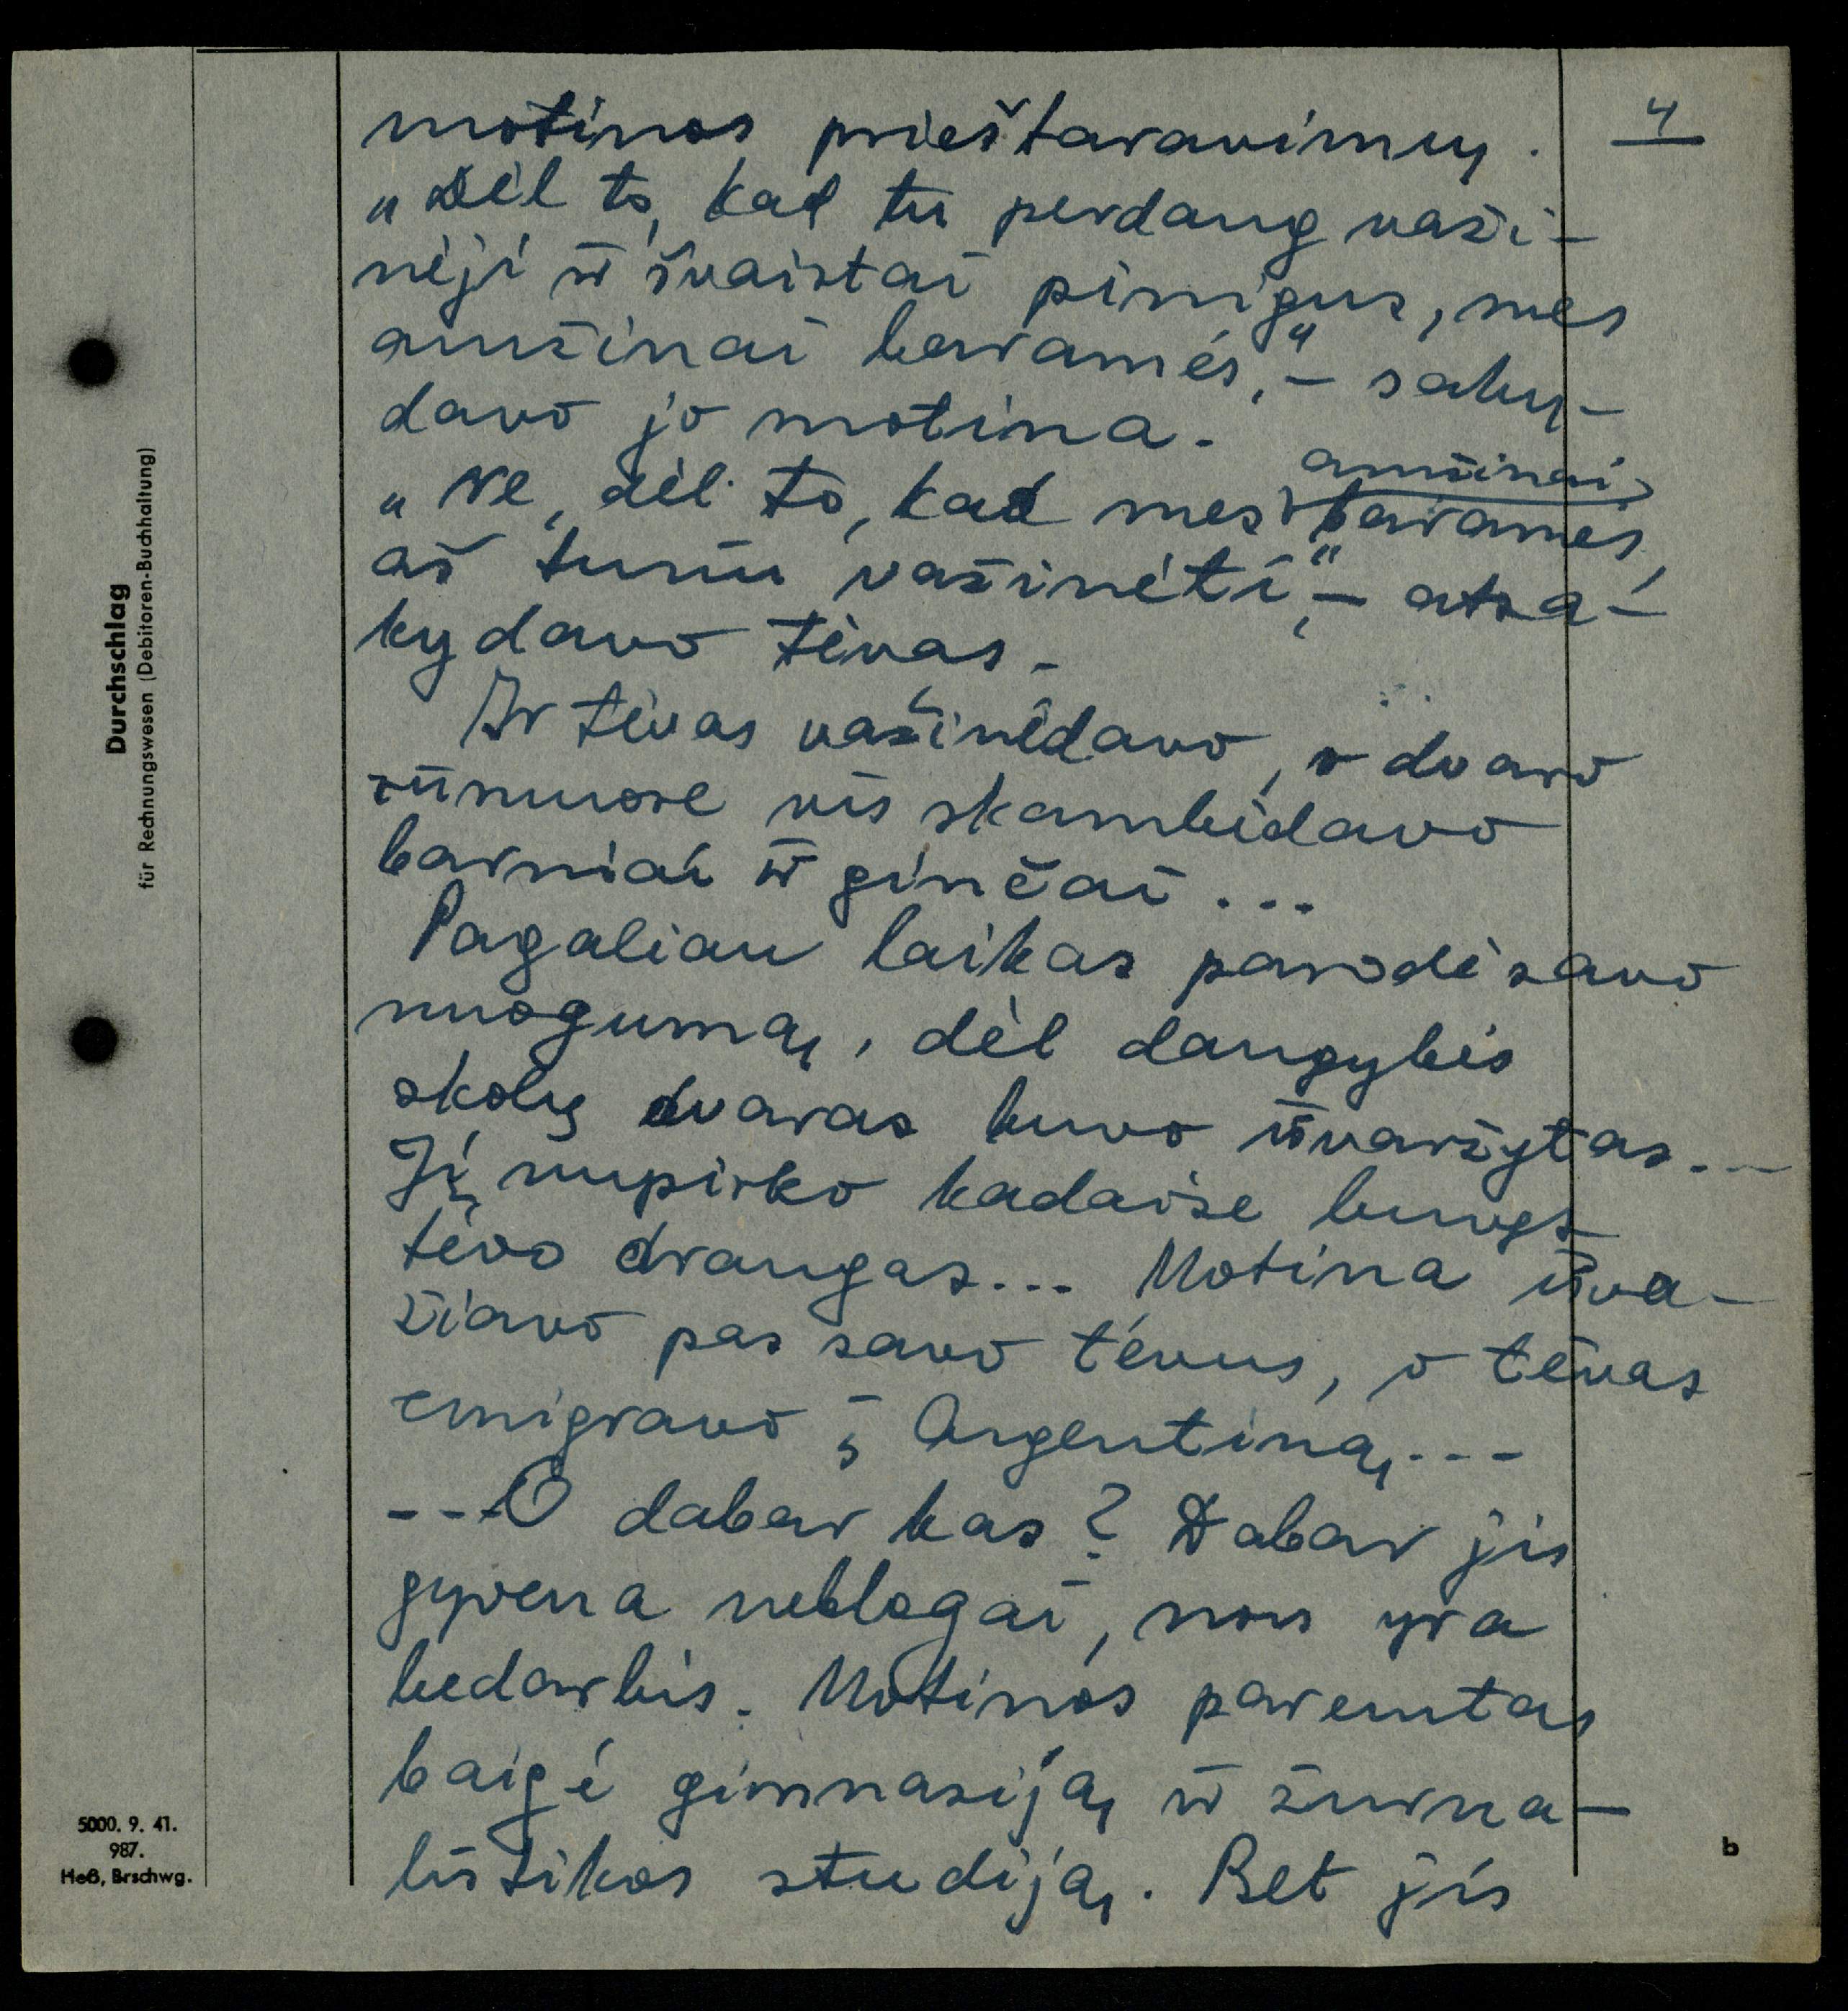 4
motinos prieštaravimų.
„Dėl to, kad tu perdaug važi-
nėji ir švaistai pinigus, mes
amžinai baramės,"– saky-
davo jo motina.
amžinai
„Ne, dėl to, kad mes baramės,
aš turiu važinėti",– atsa-
kydavo tėvas.
Ir tėvas važinėdavo, o dvaro
rūmuose vis skambėdavo
barniai ir ginčai...
Pagaliau laikas parodė savo
nuogumą, dėl daugybės
skolų dvaras buvo išvaržytas...
Jį nupirko kadaise buvęs
tėvo draugas... Motina išva-
žiavo pas savo tėvus, o tėvas
emigravo į Argentiną...
...O dabar kas? Dabar jis
gyvena neblogai, nors yra
bedarbis. Motinos paremtas
baigė gimnaziją ir žurna-
listikos studiją. Bet jis
Durchschlag
für Rechnungswesen (Debitoren-Buchhaltung)
5000. 9. 41.
987.
Heß, Brschwg.
b